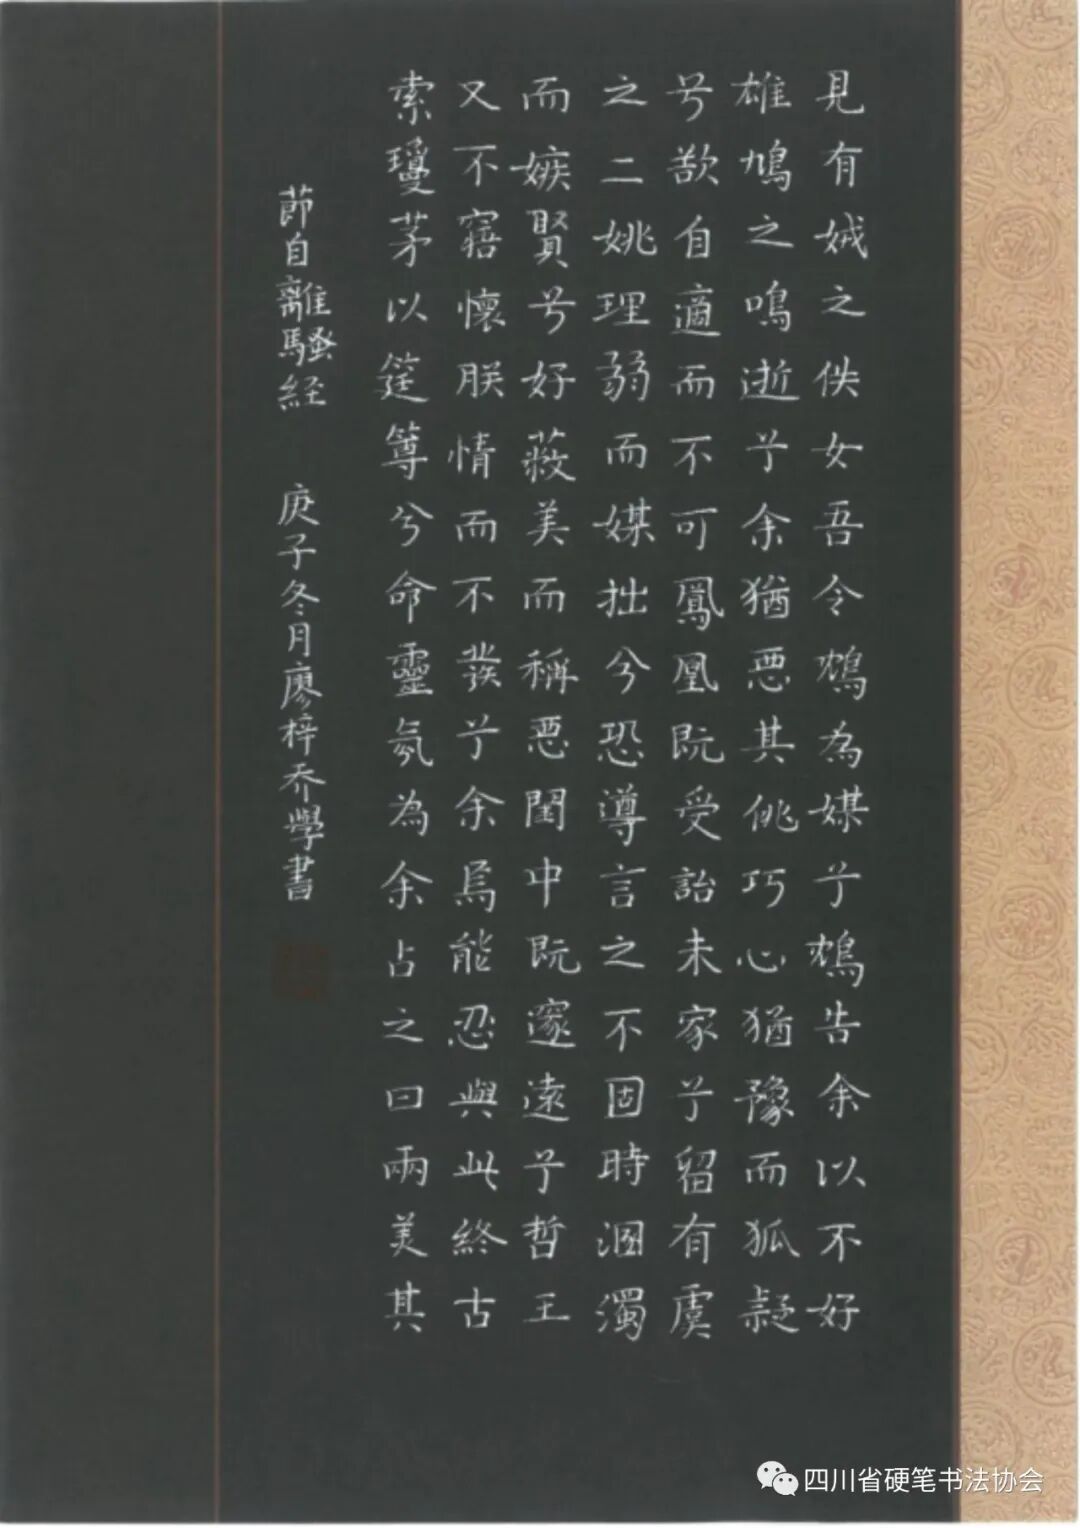 見有娀之佚女吾令鴆為媒兮鴆告余以不好
雄鳩之鳴逝兮余猶悪其佻巧心猶豫而狐疑
兮欲自適而不可鳳凰既受詒未家兮留有虞
之二姚理弱而媒拙兮恐導言之不固時溷濁
而嫉賢兮好蔽美而稱悪閨中既邃遠兮哲王
又不寤懷朕情而不發兮余焉能忍與此終古
索瓊茅以筳篿兮命靈氛為余占之曰兩美其
節自離騷経 庚子冬月廖梓乔學書
四川省硬笔书法协会